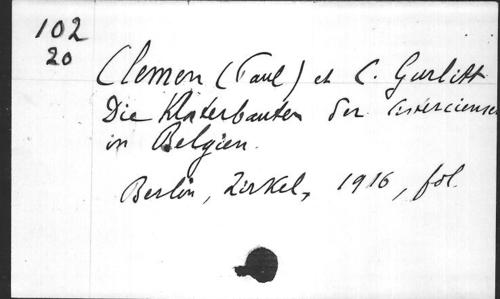 102
20
Clemen (Paul) et C. Gurlitt
Die Klosterbauten der Cistercienser
in Belgien.
Berlin, Zirkel, 1916, fol.